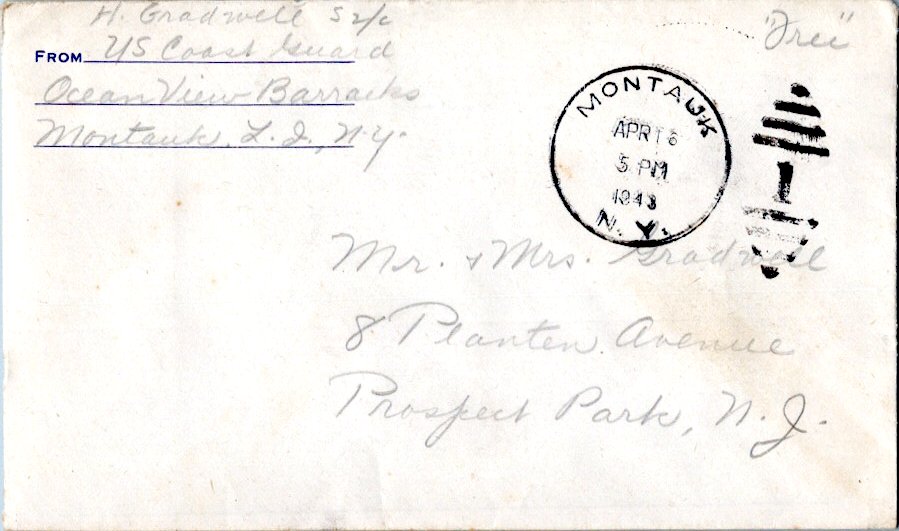 H. Gradwell S 2/c
"Free"
FROM US Coast Guard
Ocean View Barracks
Montauk, L. I., N.Y.
MONTAUK
APR 16
5 PM
1943
N. Y.
Mr. & Mrs. Gradwell
8 Planten Avenue
Prospect Park, N. J.